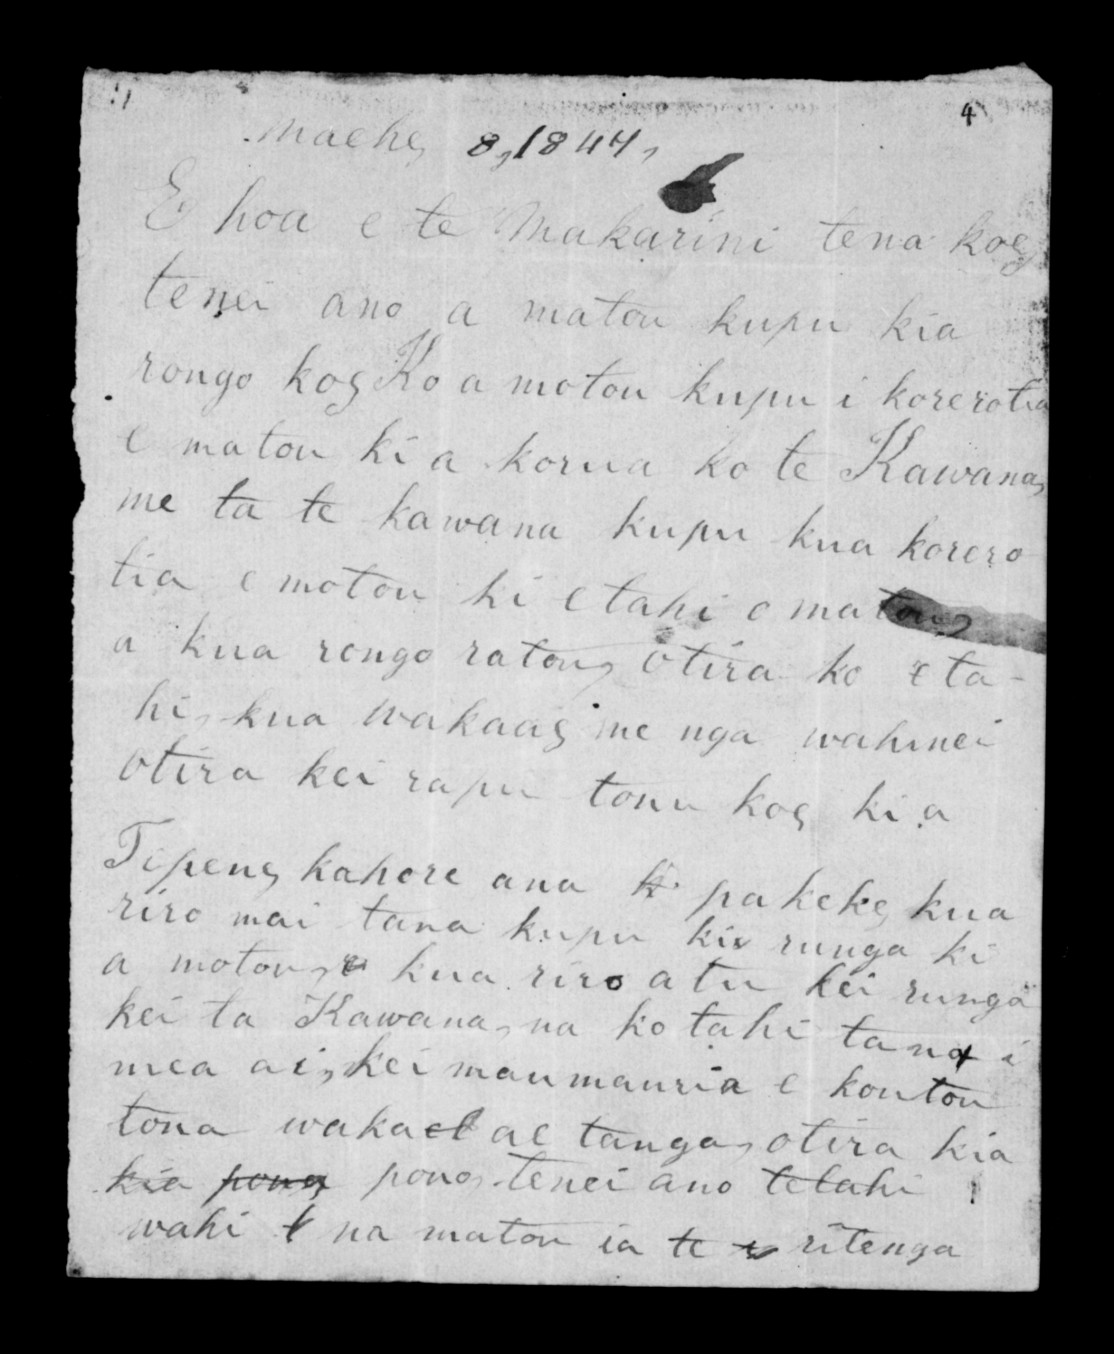 4
Maehe, 8, 1847,
E hoa e te Makarini tena koe,
tenei ano a matou kupu kia
rongo koe, Ko a motou kupu i korerotia
e matou ki a korua ko te Kawana,
me ta te kawana kupu kua korero
tia e motou ki etahi o matou,
a kua rongo ratou, otira ko eta-
hi, kua wakaae, me nga wahinei
otira kei rapu tonu koe, ki a
Tipene, kahore ana k pakeke, kua
riro mai tana kupu kie runga ki
a motou, e kua riro atu kei runga
kei ta Kawana, na ko tahi tana i
mea ai, kei maumauria e koutou
tona wakaet ae tanga, otira kia
kia pono pono, tenei ano tetahi
wahi t na matou ia te ritenga